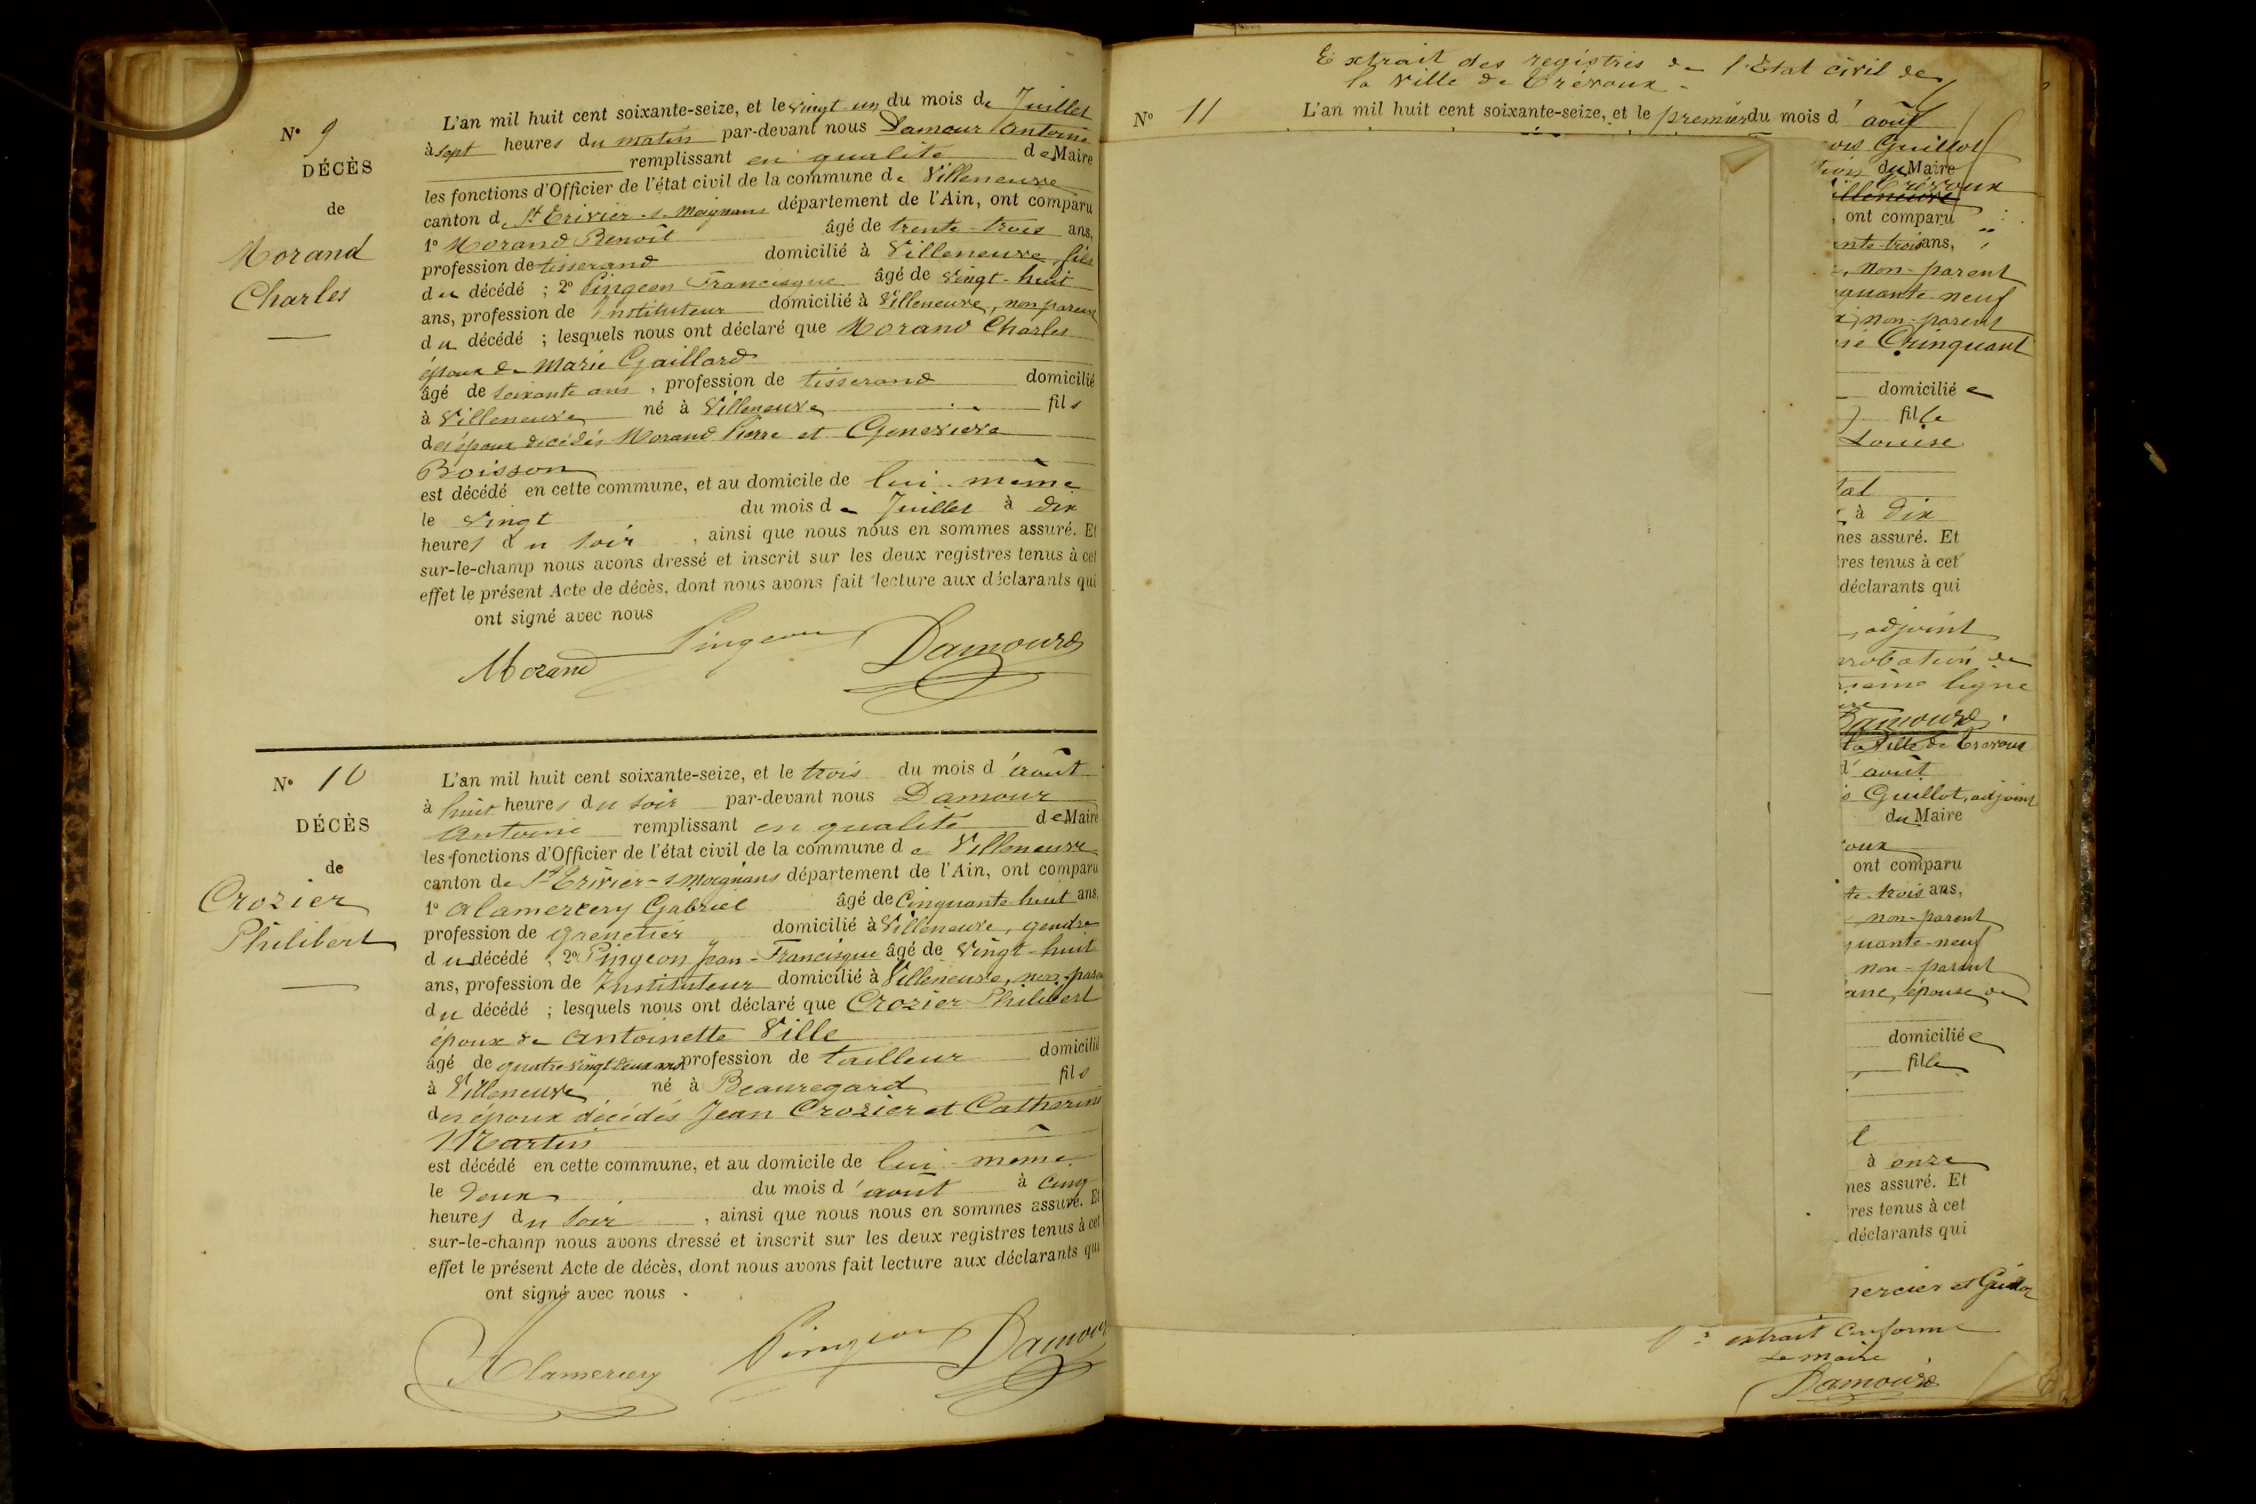 N° 9
DÉCÈS
de
Morand
Charles
L'an mil huit cent soixante-seize, et le vingt un du mois de Juillet
à sept heures du matin par-devant nous Damour Antoine
remplissant en qualité de Maire
les fonctions d'Officier de l'état civil de la commune de Villeneuve
canton de St Trivier-s-Moignans département de l'Ain, ont comparu
1° Morand Benoît âgé de trente-trois ans,
profession de tisserand domicilié à Villeneuve, fils
du décédé ; 2° Pingeon Francisque âgé de vingt-huit
ans, profession de Instituteur domicilié à Villeneuve, non parent
du décédé ; lesquels nous ont déclaré que Morand Charles
époux de Marie Gaillard
âgé de soixante ans, profession de tisserand domicilié
à Villeneuve né à Villeneuve fils
des époux décédés Morand Pierre et Geneviève
Boisson
est décédé en cette commune, et au domicile de lui-même
le vingt du mois de Juillet à dix
heures du soir, ainsi que nous nous en sommes assuré. Et
sur-le-champ nous avons dressé et inscrit sur les deux registres tenus à cet
effet le présent Acte de décès, dont nous avons fait lecture aux déclarants qui
ont signé avec nous
Morand Pingeon Damour
N° 10
DÉCÈS
de
Crozier
Philibert
L'an mil huit cent soixante-seize, et le trois du mois d'août
à huit heures du soir par-devant nous Damour
Antoine remplissant en qualité de Maire
les fonctions d'Officier de l'état civil de la commune de Villeneuve
canton de St Trivier-s-Moignans département de l'Ain, ont comparu
1° Alamercery Gabriel âgé de Cinquante huit ans,
profession de grenetier domicilié à Villeneuve, gendre
du décédé ; 2° Pingeon Jean-Francisque âgé de vingt-huit
ans, profession de Instituteur domicilié à Villeneuve, non-paren
du décédé ; lesquels nous ont déclaré que Crozier Philibert
époux de Antoinette Ville
âgé de quatre vingt deux ans, profession de tailleur domicilié
à Villeneuve né à Beauregard fils
des époux décédés Jean Crozier et Catherine
Martin
est décédé en cette commune, et au domicile de lui-même
le deux du mois d'août à cinq
heures du soir, ainsi que nous nous en sommes assuré. Et
sur-le-champ nous avons dressé et inscrit sur les deux registres tenus à cet
effet le présent Acte de décès, dont nous avons fait lecture aux déclarants qui
ont signé avec nous.
Alamercery Pingeon Damour
Extrait des registres de l'Etat civil de
la ville de Trévoux.
N° 11 L'an mil huit cent soixante-seize, et le premier du mois d'août
ois Guillot
du Maire
Trévoux
illeneuve
ont comparu
ante-trois ans,
non-parent
quante neuf
non-parent
Chinquant
domiciliée
fille
Louise
tal
à dix
nes assuré. Et
tres tenus à cet
déclarants qui
adjoint
robation de
ième ligne
Damour
la ville de Trévoux
d'août
s Guillot, adjoint
du Maire
oux
ont comparu
te-trois ans,
non-parent
quante-neuf
non-parent
ane, épouse de
domiciliée
fille
l
à onze
nes assuré. Et
res tenus à cet
déclarants qui
mercier et Guillot
Pr extrait conforme
Le maire
Damour